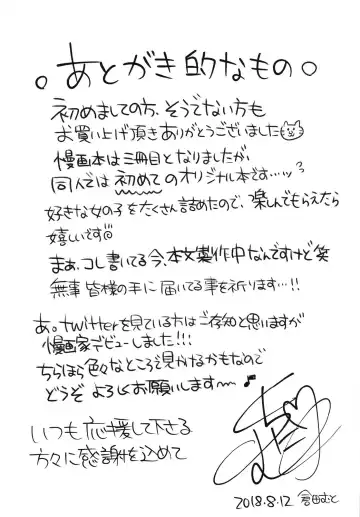 。あとがき的なもの。
初めましての方、そうでない方も
お買い上げ頂きありがとうございました
漫画本は三冊目となりましたが、
同人では初めてのオリジナル本です…ッ
好きな女の子をたくさん詰めたので、楽しんでもらえたら
嬉しいです
まぁ、コレ書いてる今、本文製作中なんですけど笑
無事皆様の手に届いてる事を祈ります…!!
あ。twitterを見ている方はご存知と思いますが
漫画家デビューしました!!!
ちらほら色々なところで見かけるかもなので
どうぞ よろしくお願いします〜♪
いつも応援して下さる
方々に感謝を込めて
2018.8.12